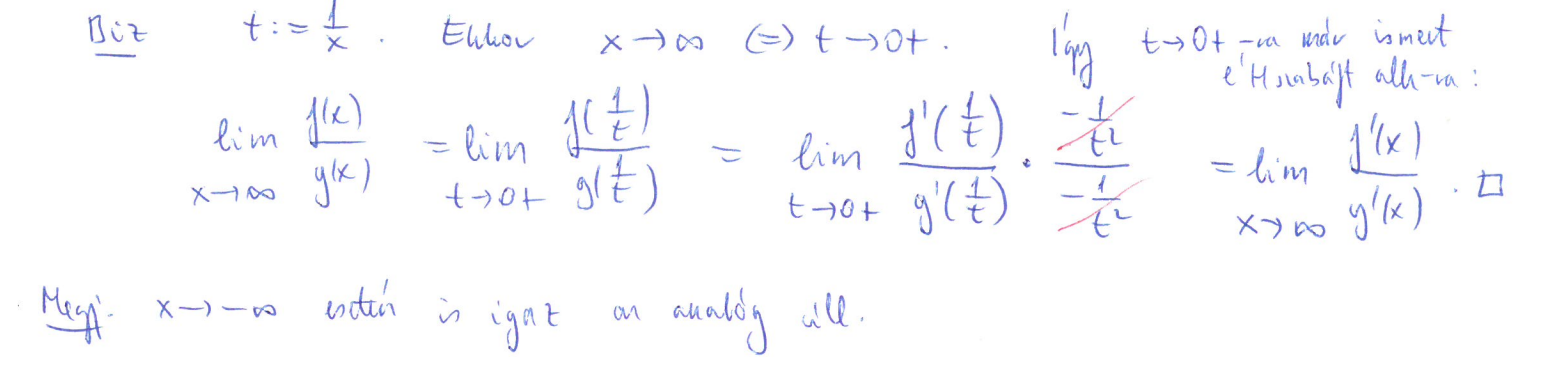 Biz t := 1/x. Ekkor x→∞ (=) t→0+. Így t→0+ -ra már ismert
l'H szabályt alk-va:
lim_{x→∞} f(x)/g(x) = lim_{t→0+} f(1/t)/g(1/t) = lim_{t→0+} f'(1/t)/g'(1/t) · (-1/t²)/(-1/t²) = lim_{x→∞} f'(x)/g'(x). □
Megj. x→-∞ esetén is igaz az analóg áll.